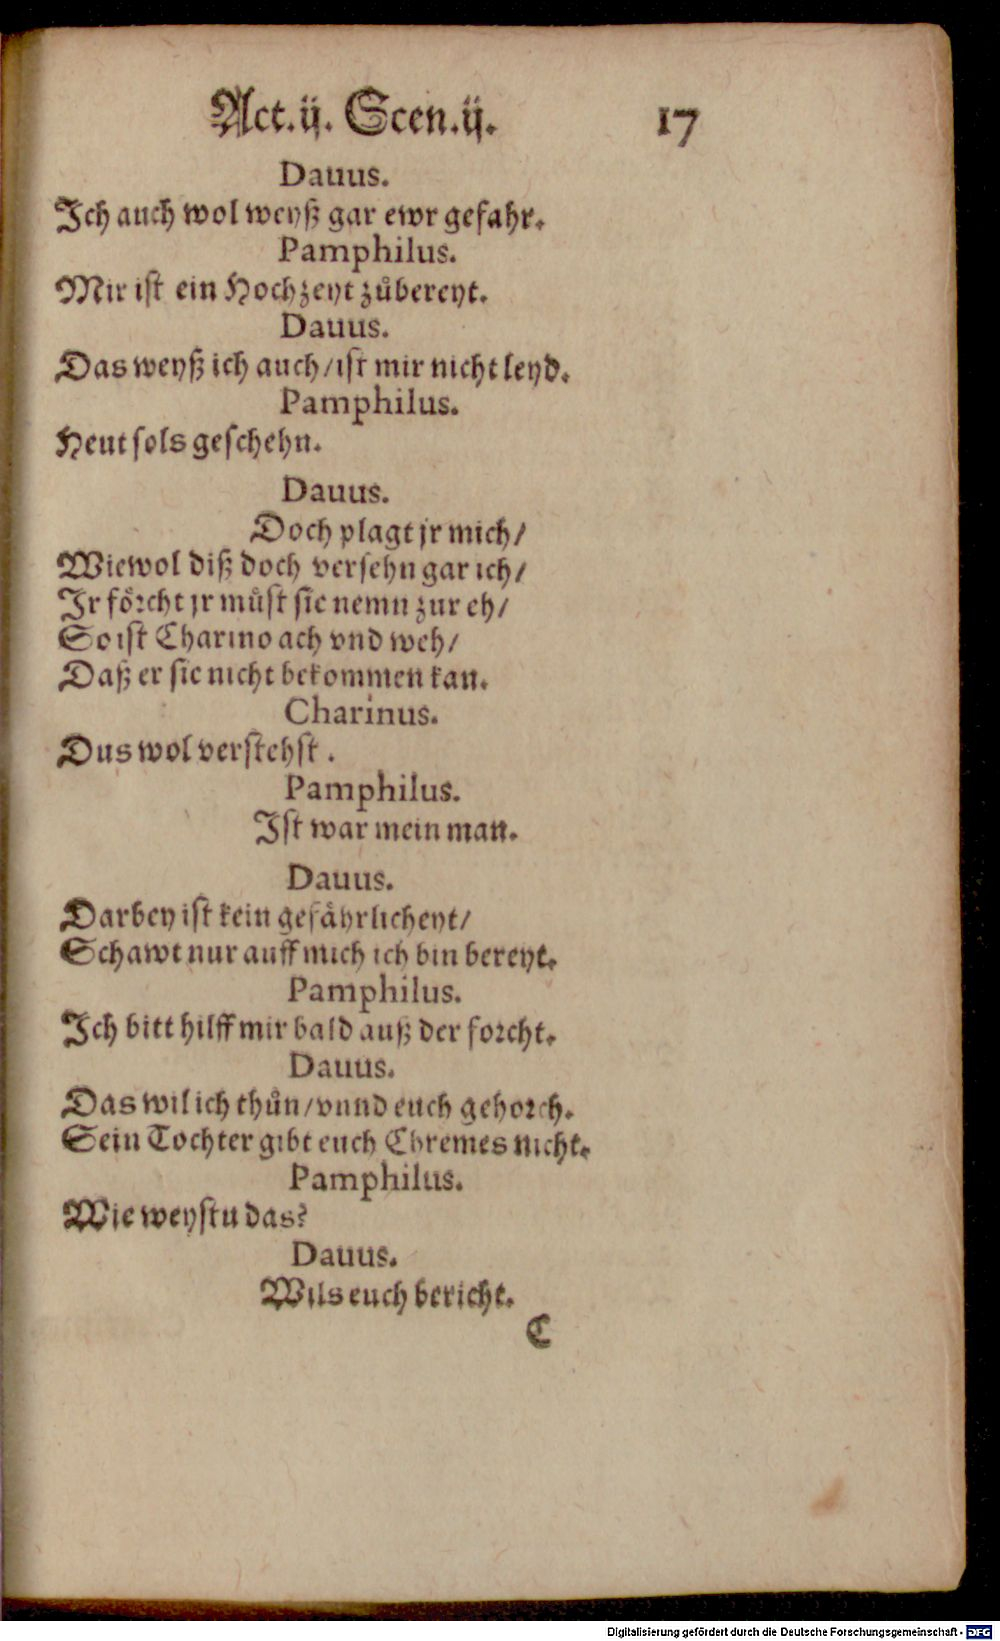 Act.ij. Scen.ij. 17
Dauus.
Ich auch wol weyß gar ewr gefahr.
Pamphilus.
Mir ist ein Hochzeyt zůbereyt.
Dauus.
Das weyß ich auch/ist mir nicht leyd.
Pamphilus.
Heut sols geschehn.
Dauus.
Doch plagt jr mich/
Wiewol diß doch versehn gar ich/
Ir förcht jr můst sie nemn zur eh/
So ist Charino ach vnd weh/
Daß er sie nicht bekommen kan.
Charinus.
Dus wol verstehst.
Pamphilus.
Ist war mein man.
Dauus.
Darbey ist kein gefährlicheyt/
Schawt nur auff mich ich bin bereyt.
Pamphilus.
Ich bitt hilff mir bald auß der forcht.
Dauus.
Das wil ich thůn/vnnd euch gehorch.
Sein Tochter gibt euch Chremes nicht.
Pamphilus.
Wie weystu das?
Dauus.
Wils euch bericht.
C
Digitalisierung gefördert durch die Deutsche Forschungsgemeinschaft - DFG